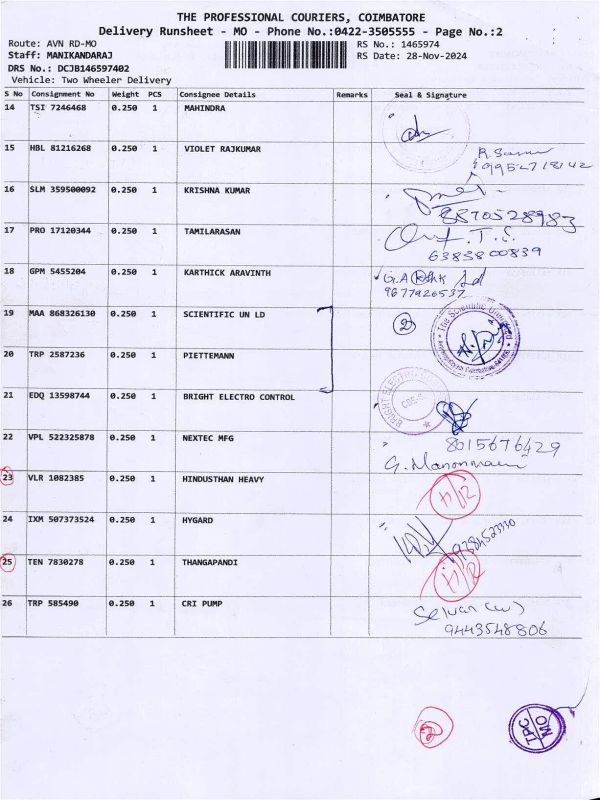 THE PROFESSIONAL COURIERS, COIMBATORE
Delivery Runsheet - MO - Phone No.:0422-3505555 - Page No.:2
Route: AVN RD-MO
RS No.: 1465974
Staff: MANIKANDARAJ
RS Date: 28-Nov-2024
DRS No.: DCJB146597402
Vehicle: Two Wheeler Delivery
S No Consignment No Weight PCS Consignee Details Remarks Seal & Signature
14 TSI 7246468 0.250 1 MAHINDRA
15 HBL 81216268 0.250 1 VIOLET RAJKUMAR
16 SLM 359500092 0.250 1 KRISHNA KUMAR
8870528983
17 PRO 17120344 0.250 1 TAMILARASAN
6383800839
18 GPM 5455204 0.250 1 KARTHICK ARAVINTH
9677926537
19 MAA 868326130 0.250 1 SCIENTIFIC UN LD
2
20 TRP 2587236 0.250 1 PIETTEMANN
21 EDQ 13598744 0.250 1 BRIGHT ELECTRO CONTROL
22 VPL 522325878 0.250 1 NEXTEC MFG
8015676429
23 VLR 1082385 0.250 1 HINDUSTHAN HEAVY
24 IXM 507373524 0.250 1 HYGARD
25 TEN 7830278 0.250 1 THANGAPANDI
26 TRP 585490 0.250 1 CRI PUMP
9443548806
TPC
MO